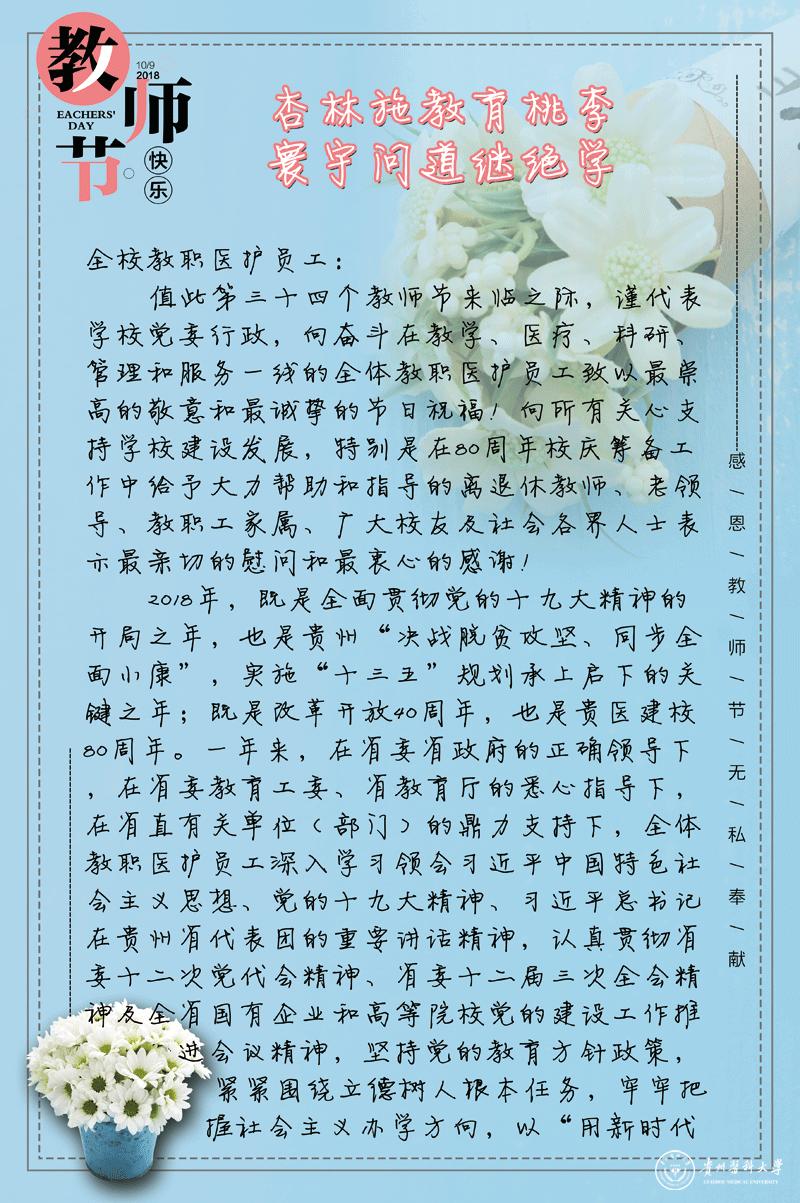 教师节
10/9
2018
EACHERS'
DAY
快乐
杏林施教育桃李
寰宇问道继绝学
全校教职医护员工：
值此第三十四个教师节来临之际，谨代表
学校党委行政，向奋斗在教学、医疗、科研、
管理和服务一线的全体教职医护员工致以最崇
高的敬意和最诚挚的节日祝福！向所有关心支
持学校建设发展，特别是在80周年校庆筹备工
作中给予大力帮助和指导的离退休教师、老领
导、教职工家属、广大校友及社会各界人士表
示最亲切的慰问和最衷心的感谢！
2018年，既是全面贯彻党的十九大精神的
开局之年，也是贵州“决战脱贫攻坚、同步全
面小康”，实施“十三五”规划承上启下的关
键之年；既是改革开放40周年，也是贵医建校
80周年。一年来，在省委省政府的正确领导下
，在省委教育工委、省教育厅的悉心指导下，
在省直有关单位（部门）的鼎力支持下，全体
教职医护员工深入学习领会习近平中国特色社
会主义思想、党的十九大精神、习近平总书记
在贵州省代表团的重要讲话精神，认真贯彻省
委十二次党代会精神、省委十二届三次全会精
神及全省国有企业和高等院校党的建设工作推
进会议精神，坚持党的教育方针政策，
紧紧围绕立德树人根本任务，牢牢把
握社会主义办学方向，以“用新时代
感/恩/教/师/节/无/私/奉/献
贵州医科大学
GUIZHOU MEDICAL UNIVERSITY